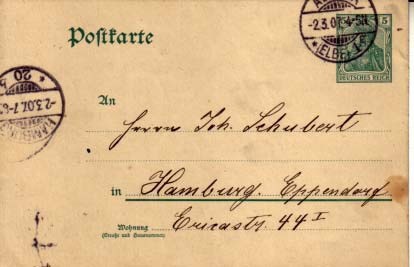 Postkarte
-2.3.07.4-5N
*(ELBE) 1 c
5
DEUTSCHES REICH
* 20 b
-2.3.07.7-8
HAMBURG
An
Herrn Joh. Schubert
in Hamburg. Eppendorf
Wohnung
(Straße und Hausnummer)
Ericastr. 44 I